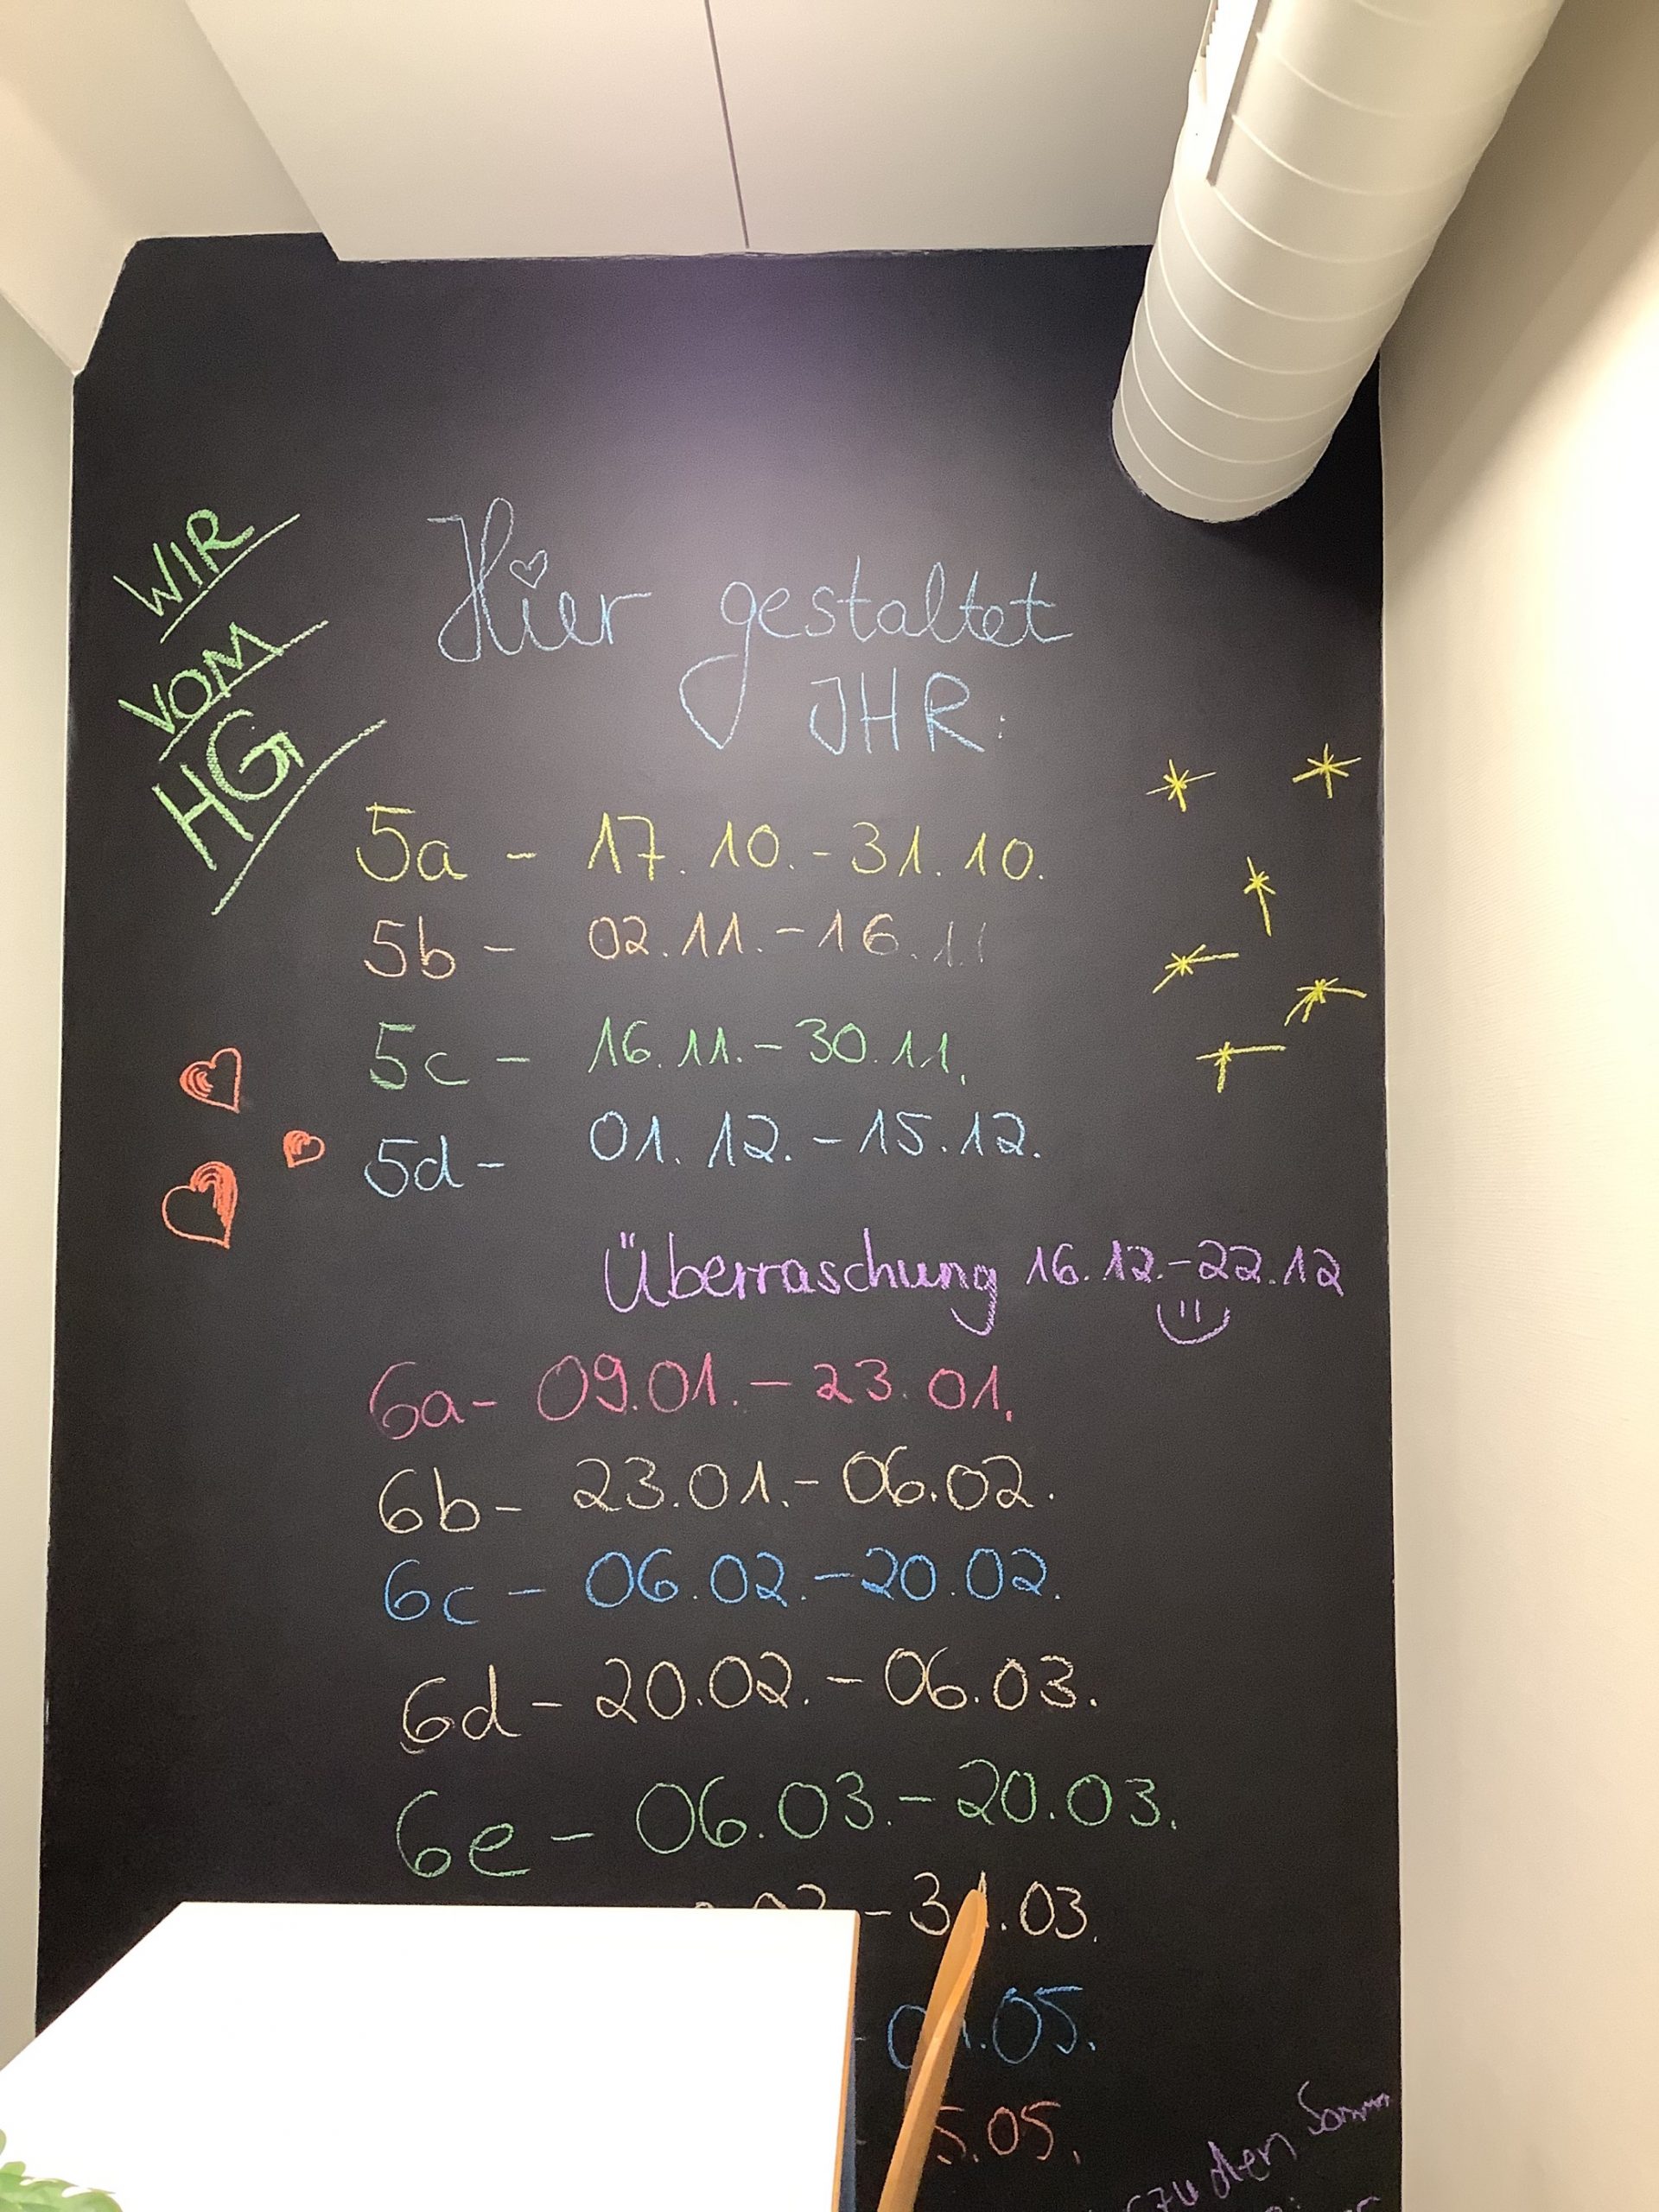 WIR
VOM
HG
Hier gestaltet
IHR:
5a - 17.10.-31.10.
5b - 02.11.-16.11
5c - 16.11.-30.11.
5d - 01.12.-15.12.
Überraschung 16.12.-22.12
6a - 09.01.-23.01.
6b - 23.01.-06.02.
6c - 06.02.-20.02.
6d - 20.02.-06.03.
6e - 06.03.-20.03.
- 31.03.
.05.
5.05.
zu den